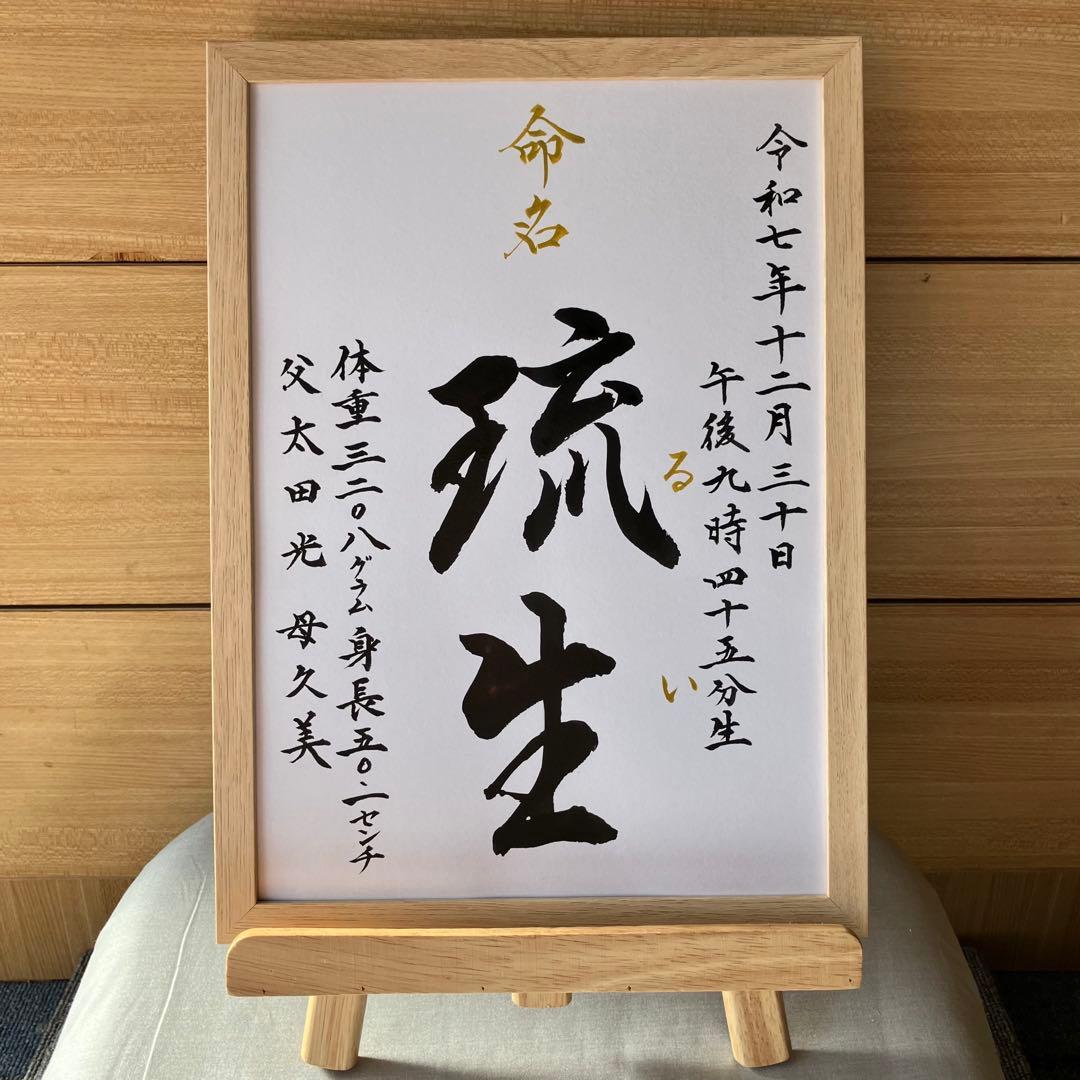 令和七年十二月三十日
午後九時四十五分生
命名
琉生
るい
体重三二〇八グラム身長五〇・二センチ
父太田光 母久美